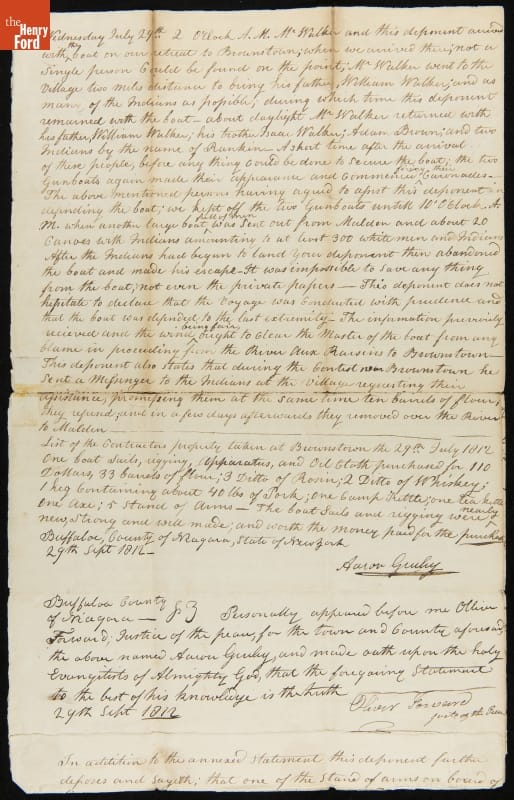 The
Henry
Ford
Wednesday July 29th 2 O'Clock A.M. Mr Walker and this deponent arrived
with the boat on our retreat to Brownstown; when we arrived there; not a
Single person Could be found on the point; Mr Walker went to the
Village two miles distance to bring his father, William Walker; and as
many of the Indians as possible; during which time this deponent
remained with the boat — about daylight Mr Walker returned with
his father, William Walker; his brother Isaac Walker; Adam Brown; and two
Indians by the name of Rankin — A short time after the arrival
of these people, before any thing Could be done to secure the boat; the two
Gunboats again made their appearance and Commenced firing their Carronades —
The above mentioned persons having agreed to assist this deponent in
depending the boat; we kept off the two Gunboats untill 10 O'Clock A.
M. when another large boat, full of men was Sent out from Maldon and about 20
Canoes with Indians amounting to at least 300 white men and Indians
After the Indians had begun to land your deponent then abandoned
the boat and made his escape — It was impossible to save any thing
from the boat; not even the private papers — This deponent does not
hesitate to declare that the voyage was Conducted with prudence and
that the boat was defended to the last extremity — The information previously
recieved and the wind being fair ought to Clear the Master of the boat from any
blame in proceeding from the River Aux Raisins to Brownstown —
This deponent also states that during the Contest near Brownstown he
Sent a Messenger to the Indians at the village requesting their
assistance, promising them at the same time ten barrels of flour,
they refused; and in a few days afterwards they removed over the River
to Maldon
List of the Contractors property taken at Brownstown the 29th July 1812
One boat Sails, rigging, Apparatus, and Oil Cloth purchased for 110
Dollars, 33 barrels of flour; 3 Ditto of Rosin; 2 Ditto of Whiskey;
1 keg Containing about 40 lbs of Pork; one Camp Kettle; one tea kettle
one Axe; 5 Stand of Arms — The boat Sails and rigging were nearly
new, Strong and well made; and worth the money paid for the purchase
Buffaloe, County of Niagara, State of New York
29th Sept 1812 —
Aaron Greeley
Buffaloe County
of Niagara — Personally appeared before me Oliver
Forward, Justice of the peace, for the town and County aforesaid
the above named Aaron Greeley, and made oath upon the holy
Evangelists of Almighty God, that the foregoing Statement
to the best of his knowledge is the truth
29th Sept 1812
Oliver Forward
Justice of the Peace
In addition to the annexed Statement this deponent further
deposes and Sayeth; that one of the Stand of arms on board of